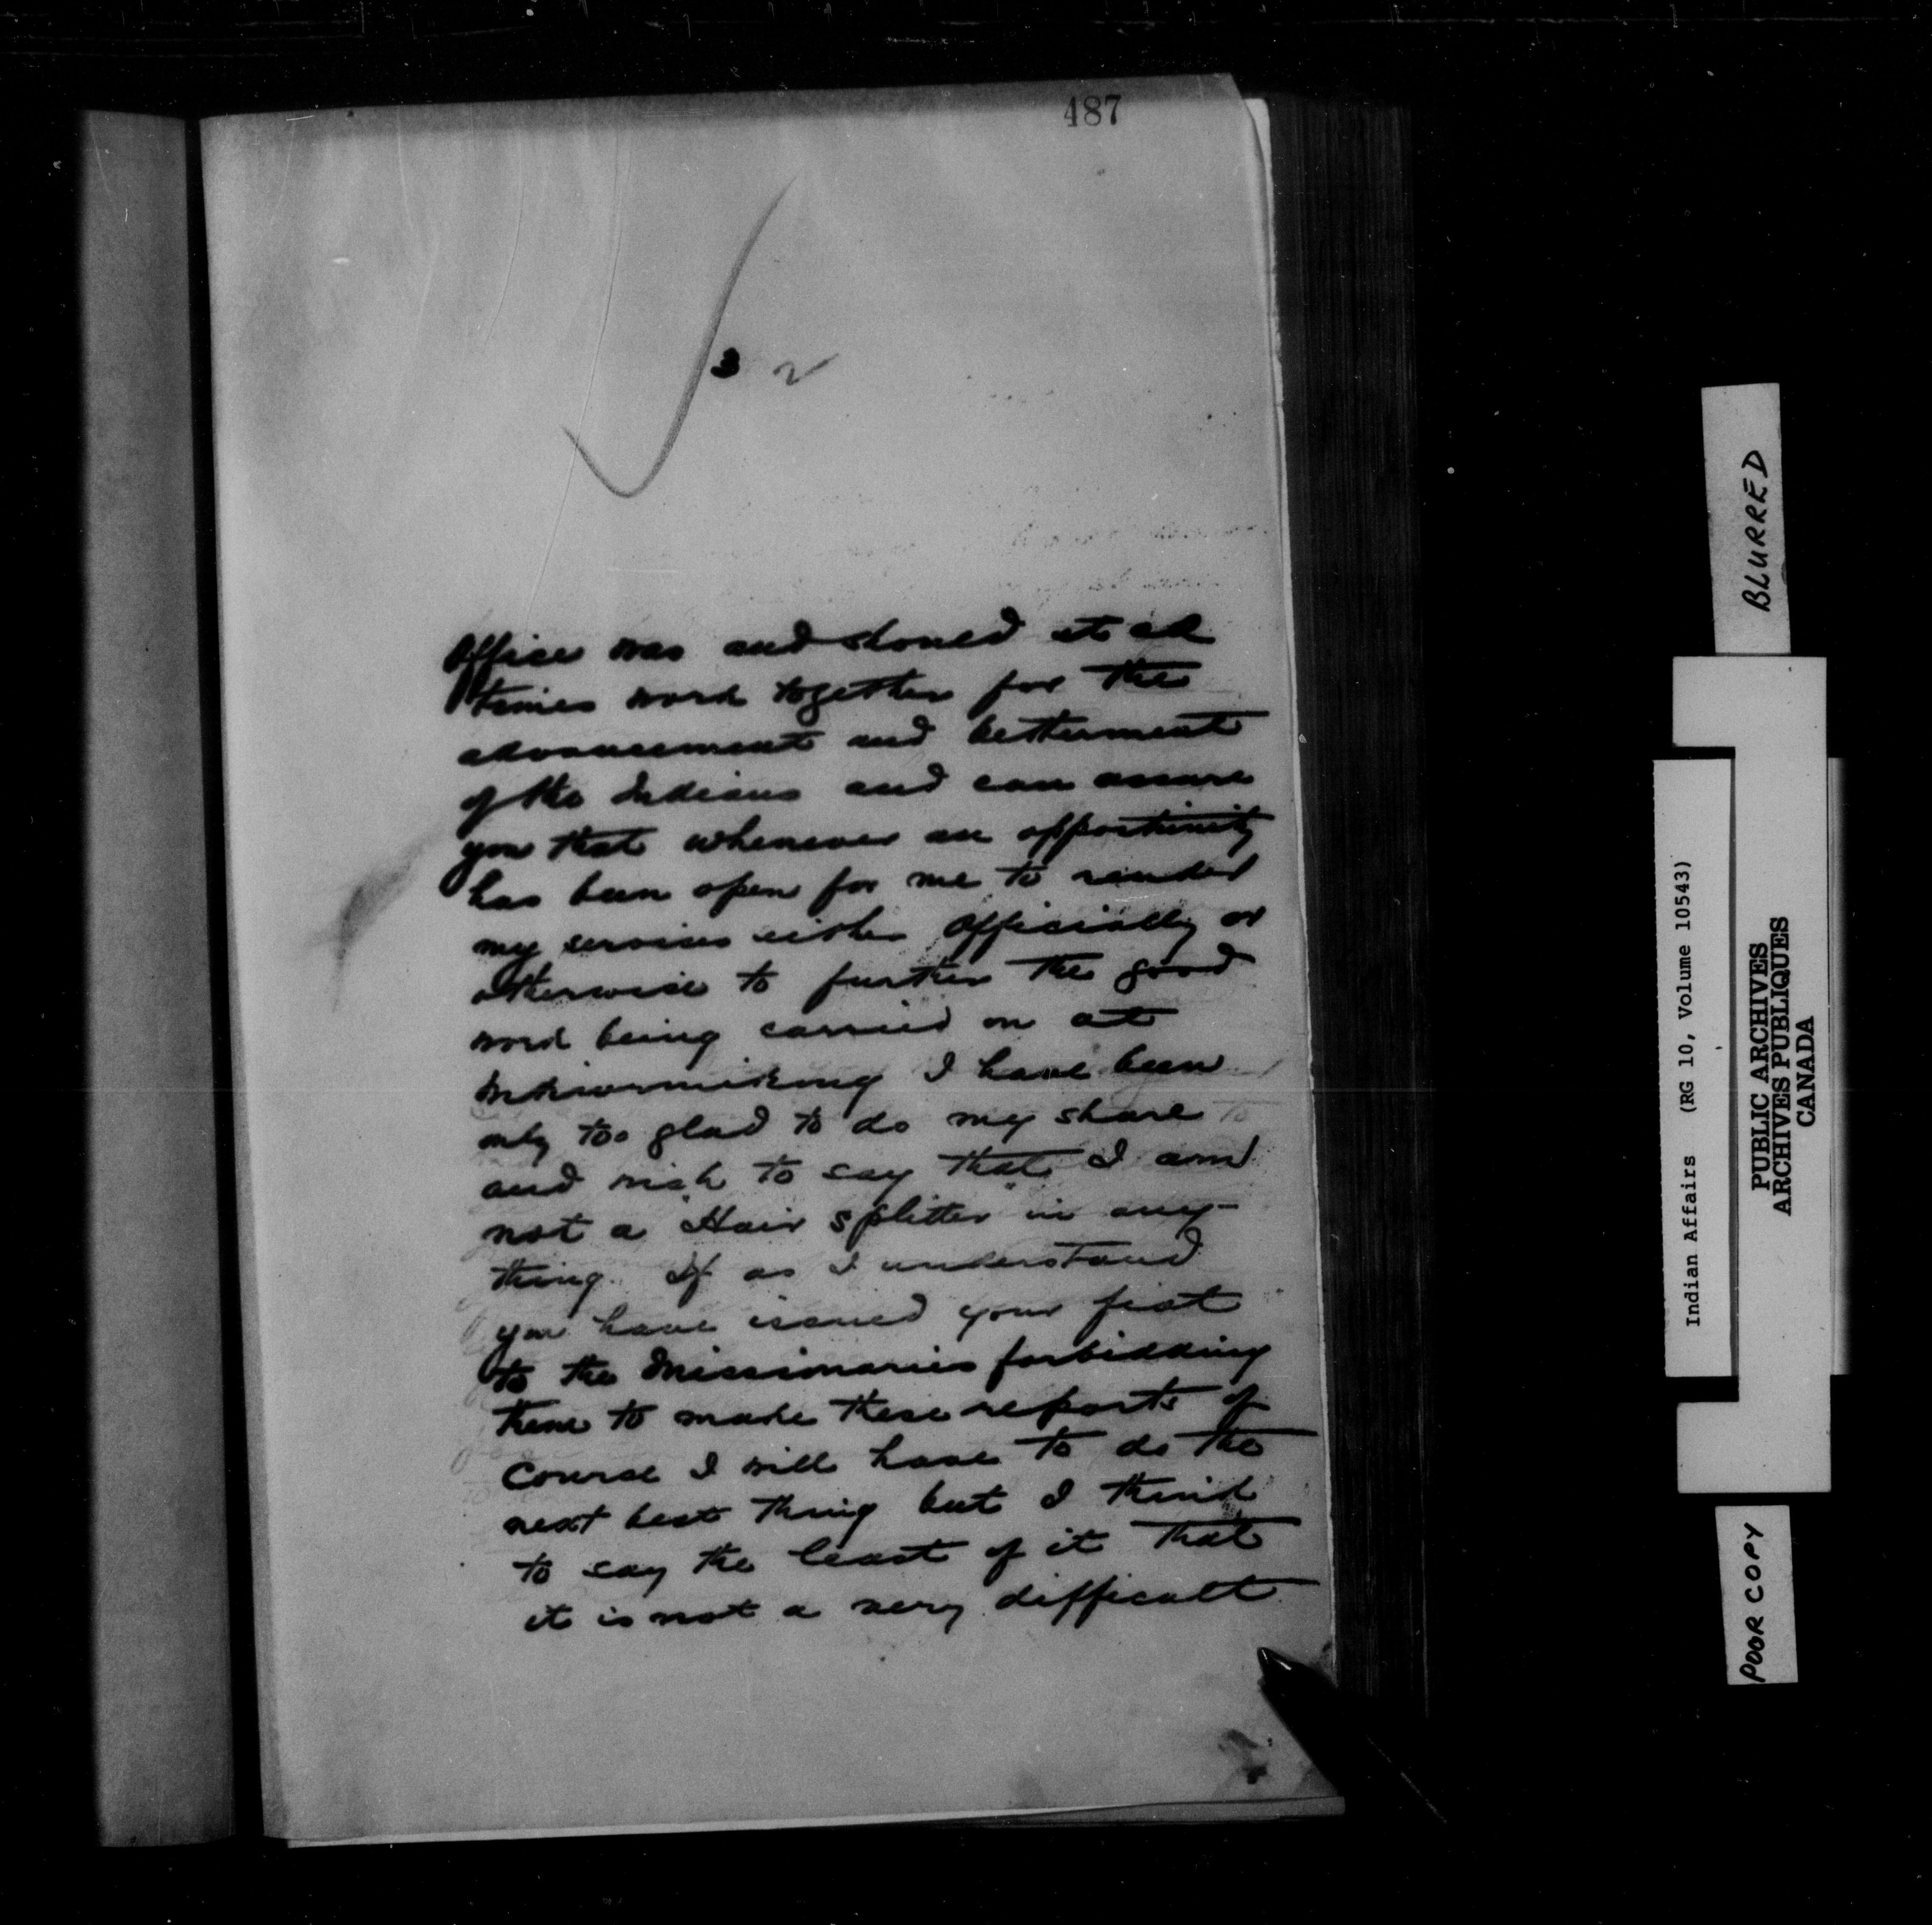 487
3 2
Office was and should at all
times work together for the
advancement and betterment
of the Indians and can assure
you that whenever an opportunity
has been open for me to render
my services either Officially or
otherwise to further the good
work being carried on at
I have been
only too glad to do my share
and wish to say that I am
not a "Hair splitter" in any-
thing. If as I understand
you have issued your fiat
to the Missionaries forbidding
them to make these reports of
course I will have to do the
next best thing but I think
to say the least of it that
it is not a very difficult
BLURRED
Indian Affairs (RG 10, Volume 10543)
PUBLIC ARCHIVES
ARCHIVES PUBLIQUES
CANADA
POOR COPY